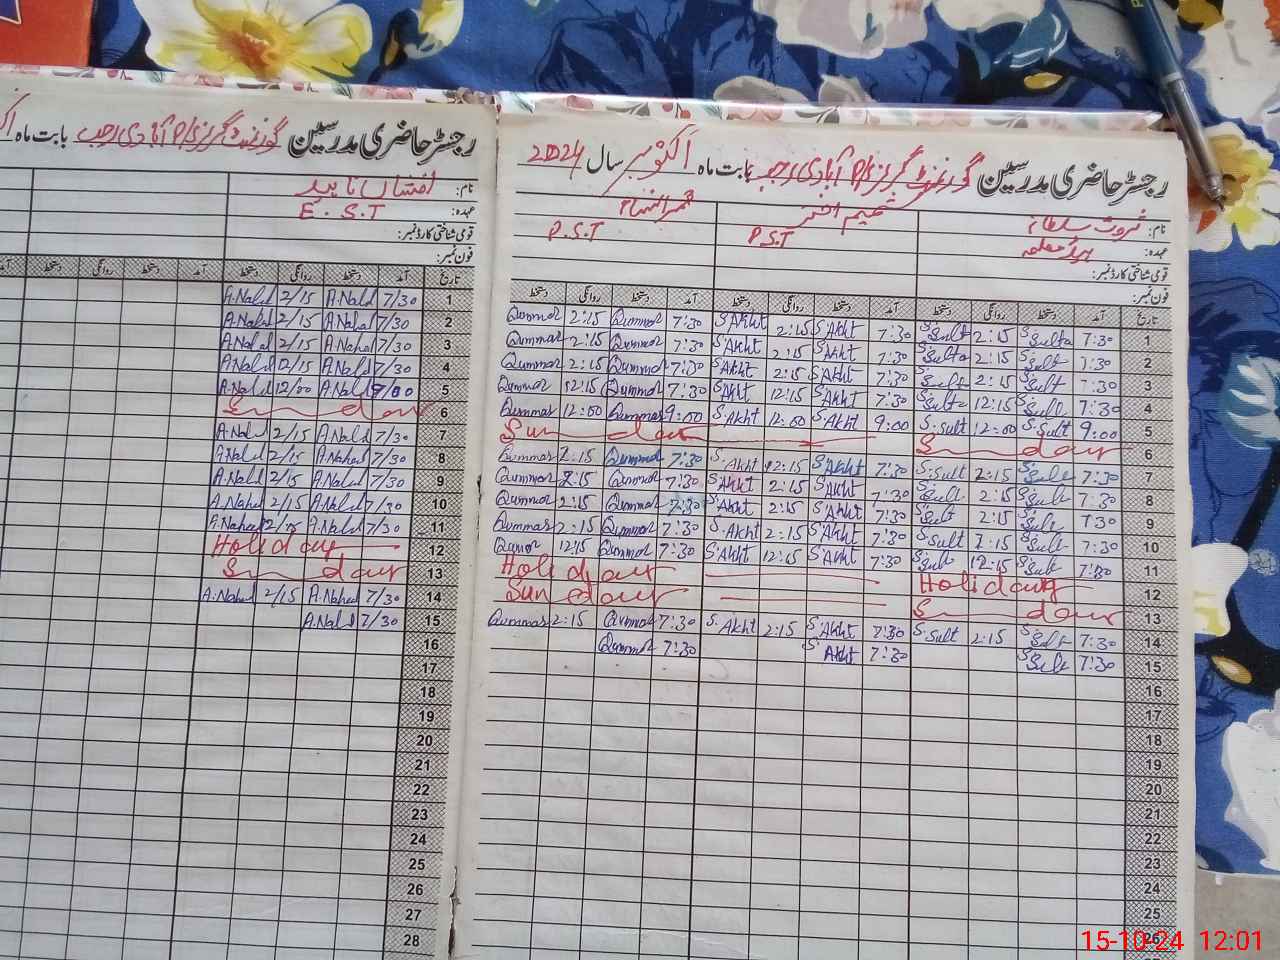 رجسٹر حاضری مدرسین گورنمنٹ گرلز P/S آبادی رجب بابت ماہ اکتوبر سال 2024
نام: ثروت سلطانہ شمیم اختر قمر النساء
عہدہ: ہیڈ معلمہ P.S.T P.S.T
قومی شناختی کارڈ نمبر:
فون نمبر:
تاریخ آمد دستخط روانگی دستخط آمد دستخط روانگی دستخط آمد دستخط روانگی دستخط
1 7:30 S.Sulta 2:15 S.Sult 7:30 S.Akht 2:15 S.Akht 7:30 Qummar 2:15 Qummar
2 7:30 S.Sult 2:15 S.Sulta 7:30 S.Akht 2:15 S.Akht 7:30 Qummar 2:15 Qummar
3 7:30 S.Sult 2:15 S.Sult 7:30 S.Akht 2:15 S.Akht 7:30 Qummar 2:15 Qummar
4 7:30 S.Sult 12:15 S.Sult 7:30 S.Akht 12:15 S.Akht 7:30 Qummar 12:15 Qummar
5 9:00 S.Sult 12:00 S.Sult 9:00 S.Akht 12:00 S.Akht 9:00 Qummar 12:00 Qummar
6 Sunday Sunday
7 7:30 S.Sult 2:15 S.Sult 7:30 S.Akht 2:15 S.Akht 7:30 Qummar 2:15 Qummar
8 7:30 S.Sult 2:15 S.Sult 7:30 S.Akht 2:15 S.Akht 7:30 Qummar 2:15 Qummar
9 7:30 S.Sult 2:15 S.Sult 7:30 S.Akht 2:15 S.Akht 7:30 Qummar 2:15 Qummar
10 7:30 S.Sult 2:15 S.Sult 7:30 S.Akht 2:15 S.Akht 7:30 Qummar 2:15 Qummar
11 7:30 S.Sult 12:15 S.Sult 7:30 S.Akht 12:15 S.Akht 7:30 Qummar 12:15 Qummar
12 Holiday Holiday
13 Sunday Sunday
14 7:30 S.Sult 2:15 S.Sult 7:30 S.Akht 2:15 S.Akht 7:30 Qummar 2:15 Qummar
15 7:30 S.Sult 7:30 S.Akht 7:30 Qummar
16
17
18
19
20
21
22
23
24
25
26
رجسٹر حاضری مدرسین گورنمنٹ گرلز P/S آبادی رجب بابت ماہ
نام: افشاں ناہید
عہدہ: E.S.T
قومی شناختی کارڈ نمبر:
فون نمبر:
تاریخ آمد دستخط روانگی دستخط آمد دستخط روانگی دستخط آمد
1 7/30 A.Nahd 2/15 A.Nahd
2 7/30 A.Nahed 2/15 A.Nahd
3 7/30 A.Nahed 2/15 A.Nahd
4 7/30 A.Nahd 12/15 A.Nahd
5 9/00 A.Nahd 12/00 A.Nahd
6 Sunday
7 7/30 A.Nahd 2/15 A.Nahd
8 7/30 A.Nahed 2/15 A.Nahd
9 7/30 A.Nahd 2/15 A.Nahd
10 7/30 A.Nahed 2/15 A.Nahed
11 7/30 A.Nahd 12/15 A.Nahed
12 Holiday
13 Sunday
14 7/30 A.Nahed 2/15 A.Nahed
15 7/30 A.Nahd
16
17
18
19
20
21
22
23
24
25
26
27
28
15-10-24 12:01